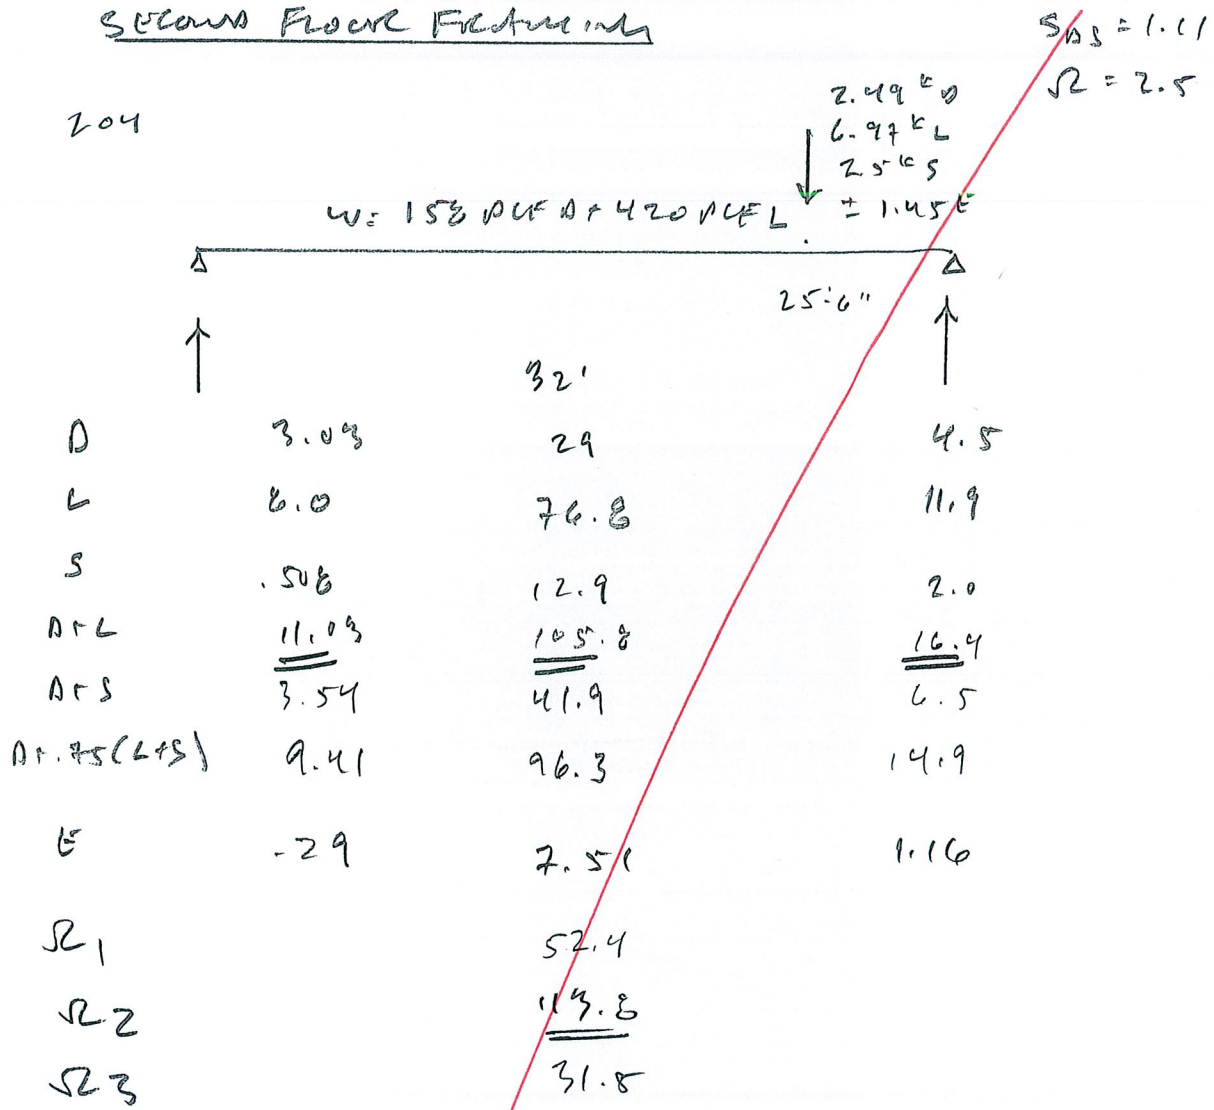 SECOND FLOOR FRAMING
S_DS = 1.11
Ω = 2.5
204
2.49 K D
6.97 K L
2.5 K S
± 1.45 E
W = 158 PLF D + 420 PLF L
25'-6"
32'
D 3.03 29 4.5
L 8.0 76.8 11.9
S .508 12.9 2.0
D+L 11.03 105.8 16.4
D+S 3.54 41.9 6.5
D+.75(L+S) 9.41 96.3 14.9
E .29 7.51 1.16
Ω1 52.4
Ω2 113.8
Ω3 31.5